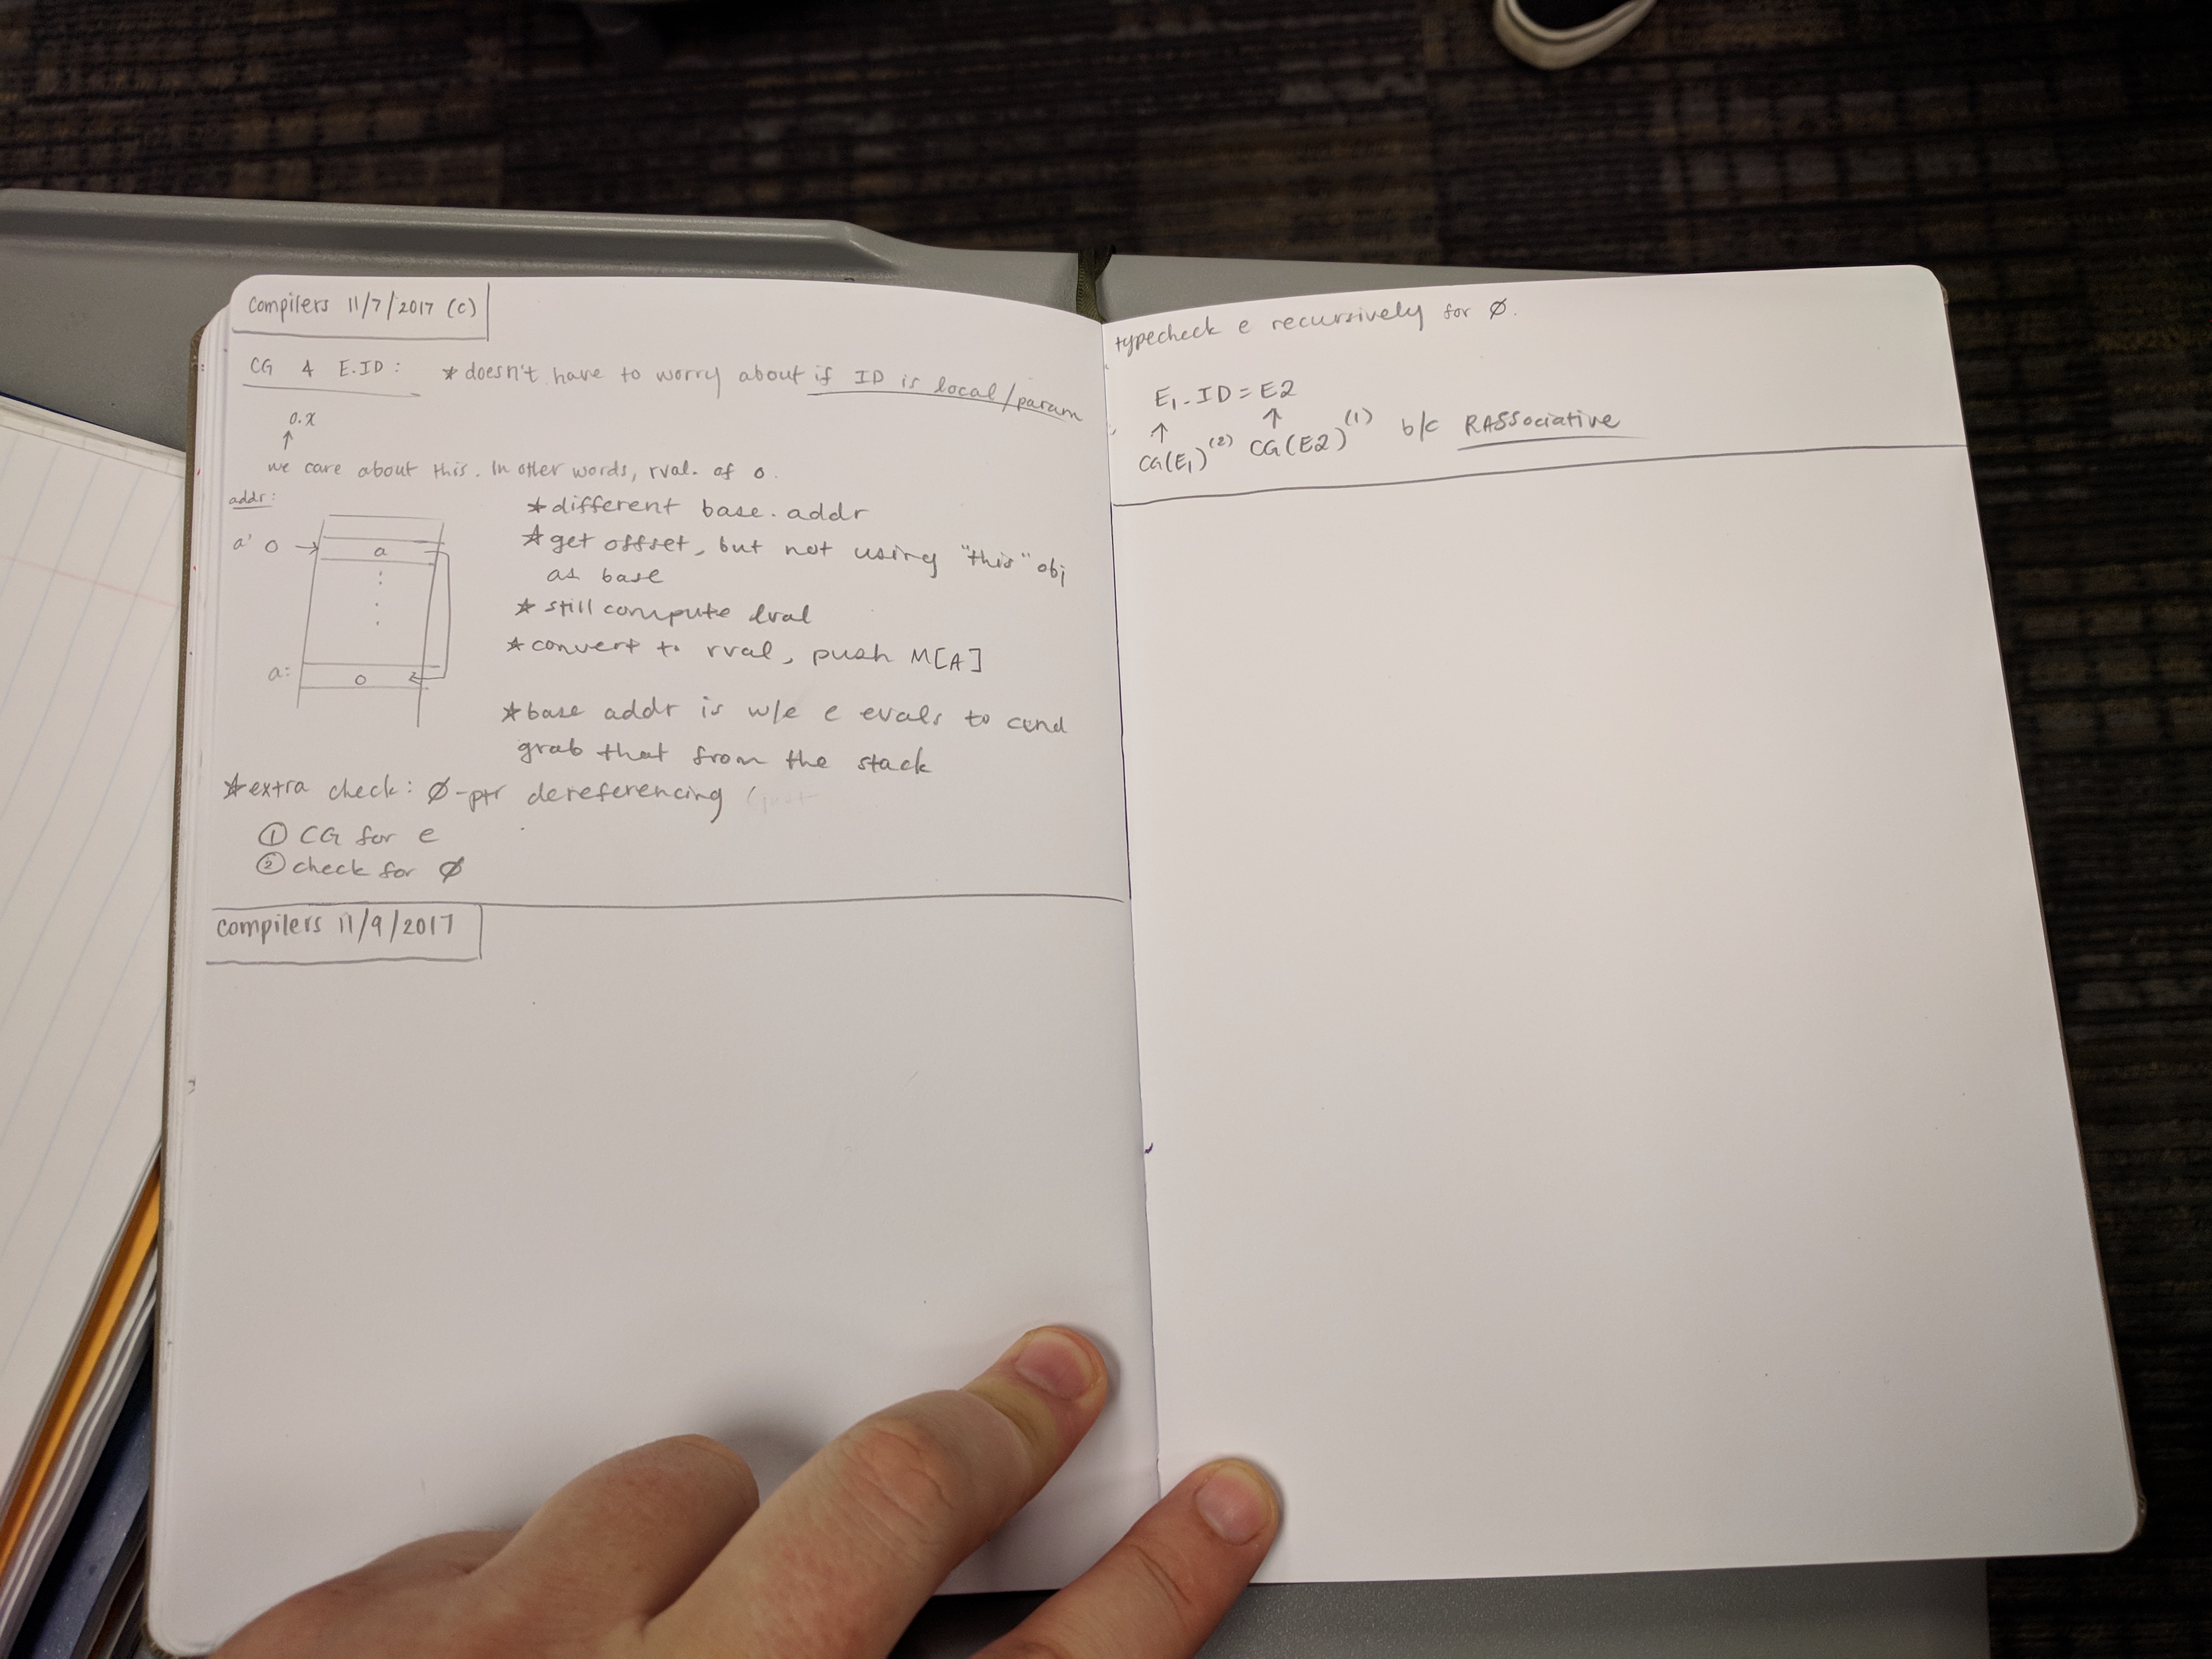 Compilers 11/7/2017 (c)
CG 4 E.ID: * doesn't have to worry about if ID is local/param
o.x
↑
we care about this. In other words, rval. of o.
addr:
a' o → a
a: o
* different base. addr
* get offset, but not using "this" obj
as base
* still compute lval
* convert to rval, push M[A]
* base addr is w/e e evals to and
grab that from the stack
* extra check: Ø-ptr dereferencing
① CG for e
② check for Ø
Compilers 11/9/2017
typecheck e recursively for Ø.
E1.ID = E2
↑ ↑
CG(E1)(2) CG(E2)(1) b/c RASSociative